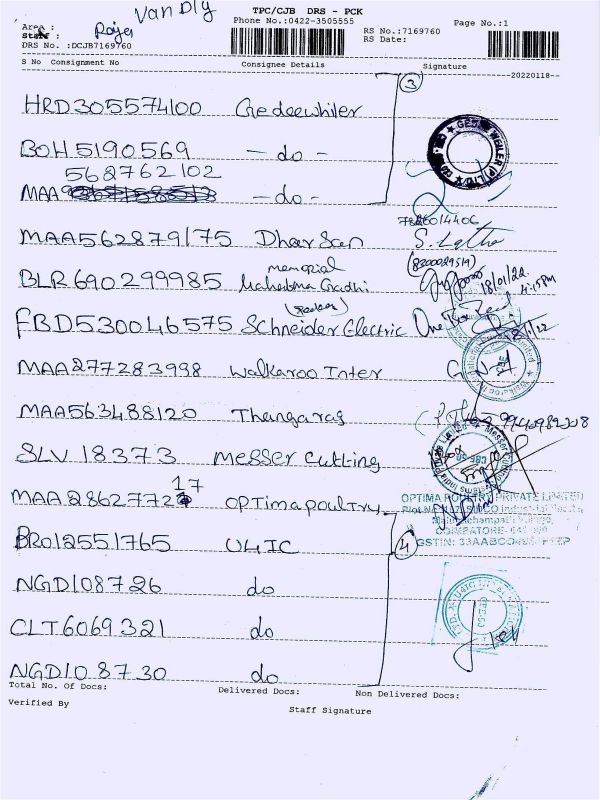 Van Dly
TPC/CJB DRS - PCK
Phone No.:0422-3505555
Page No.:1
Area :
Staff :
RS No.:7169760
RS Date:
DRS No. :DCJB7169760
S No Consignment No Consignee Details Signature
20220118
3
HRD305574100 Gedeewhiler
BOH5190569 - do -
562762102
MAA - do -
7826014406
MAA562879175 Dharsan S. Latha
memorial (8200029519)
BLR690299985 Mahatma Gandhi 18/01/22 4:15PM
FBD530046575 Schneider Electric One
MAA277283998 Walkaroo Inter
MAA563488120 Thangaraj 9940982208
SLV 18373 Messer Cutting
17
MAA2862772 Optima poultry
OPTIMA POULTRY PRIVATE LIMITED
COIMBATORE-641
GSTIN: 33AABCO
4
BRO12551765 UHC
NGD108726 do
CLT6069321 do
NGD108730 do
Total No. Of Docs: Delivered Docs: Non Delivered Docs:
Verified By
Staff Signature